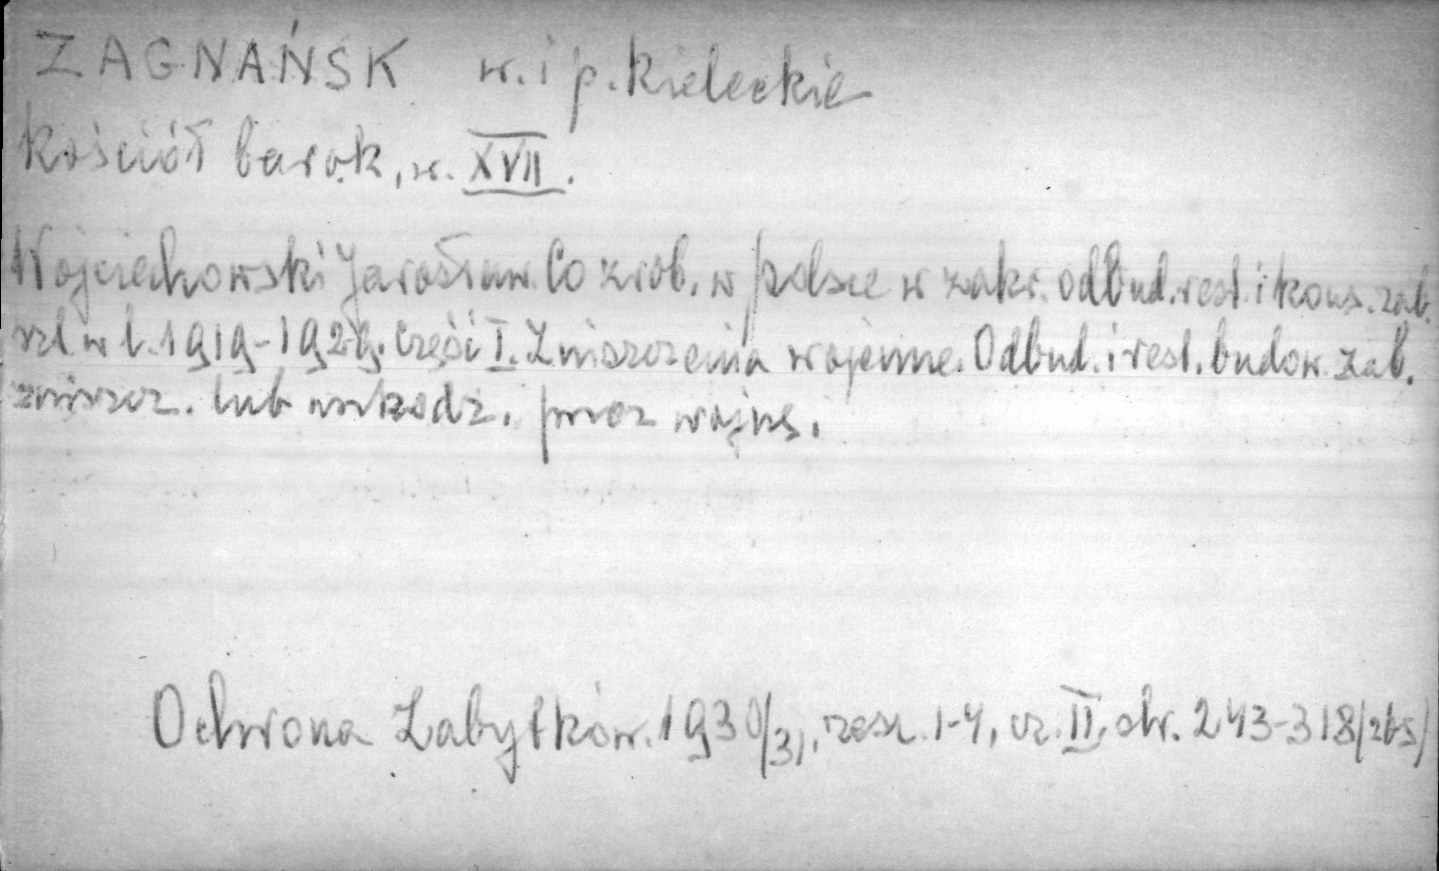 ZAGNAŃSK w. i p. kieleckie
kościół barok, w. XVII.
Wojciechowski Jarosław. Co zrob. w Polsce w zakr. odbud. rest. i kons. zab.
szt w l. 1919-1929. Część I. Zniszczenia wojenne. Odbud. i rest. budow. zab.
zniszcz. lub uszkodz. przez wojnę.
Ochrona Zabytków. 1930/31, zesz. 1-4, cz. II, str. 243-318/265/